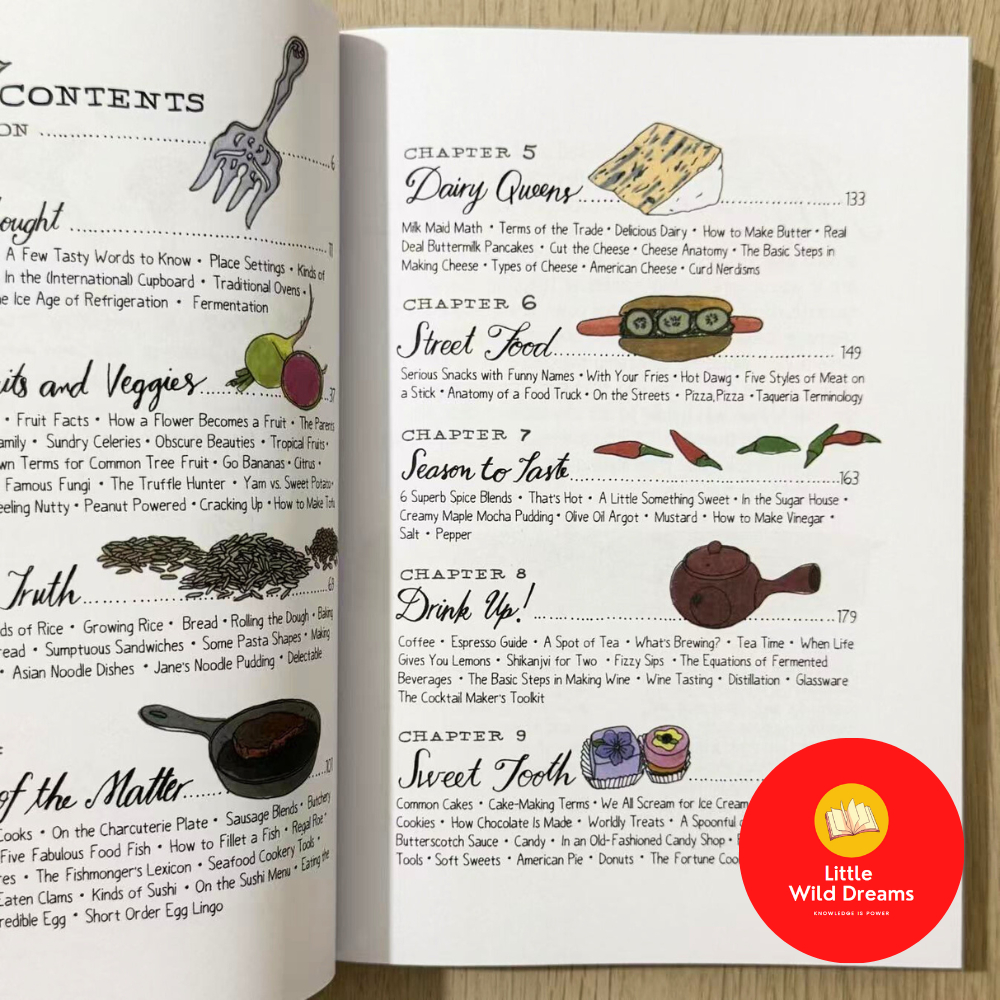 CONTENTS
ON ........ 6
ought ........ 11
A Few Tasty Words to Know • Place Settings • Kinds of
In the (International) Cupboard • Traditional Ovens •
e Ice Age of Refrigeration • Fermentation
its and Veggies ........ 37
• Fruit Facts • How a Flower Becomes a Fruit • The Parents
amily • Sundry Celeries • Obscure Beauties • Tropical Fruits •
wn Terms for Common Tree Fruit • Go Bananas • Citrus •
Famous Fungi • The Truffle Hunter • Yam vs. Sweet Potato •
eeling Nutty • Peanut Powered • Cracking Up • How to Make Tofu
Truth ........ 63
ds of Rice • Growing Rice • Bread • Rolling the Dough • Baking
read • Sumptuous Sandwiches • Some Pasta Shapes • Making
• Asian Noodle Dishes • Jane's Noodle Pudding • Delectable
of the Matter ........ 101
Cooks • On the Charcuterie Plate • Sausage Blends • Butchery
Five Fabulous Food Fish • How to Fillet a Fish • Regal Roe •
res • The Fishmonger's Lexicon • Seafood Cookery Tools •
Eaten Clams • Kinds of Sushi • On the Sushi Menu • Eating the
redible Egg • Short Order Egg Lingo
CHAPTER 5
Dairy Queens ........ 133
Milk Maid Math • Terms of the Trade • Delicious Dairy • How to Make Butter • Real
Deal Buttermilk Pancakes • Cut the Cheese • Cheese Anatomy • The Basic Steps in
Making Cheese • Types of Cheese • American Cheese • Curd Nerdisms
CHAPTER 6
Street Food ........ 149
Serious Snacks with Funny Names • With Your Fries • Hot Dawg • Five Styles of Meat on
a Stick • Anatomy of a Food Truck • On the Streets • Pizza, Pizza • Taqueria Terminology
CHAPTER 7
Season to Taste ........ 163
6 Superb Spice Blends • That's Hot • A Little Something Sweet • In the Sugar House •
Creamy Maple Mocha Pudding • Olive Oil Argot • Mustard • How to Make Vinegar •
Salt • Pepper
CHAPTER 8
Drink Up! ........ 179
Coffee • Espresso Guide • A Spot of Tea • What's Brewing? • Tea Time • When Life
Gives You Lemons • Shikanjvi for Two • Fizzy Sips • The Equations of Fermented
Beverages • The Basic Steps in Making Wine • Wine Tasting • Distillation • Glassware
The Cocktail Maker's Toolkit
CHAPTER 9
Sweet Tooth ........
Common Cakes • Cake-Making Terms • We All Scream for Ice Cream
Cookies • How Chocolate Is Made • Worldly Treats • A Spoonful
Butterscotch Sauce • Candy • In an Old-Fashioned Candy Shop •
Tools • Soft Sweets • American Pie • Donuts • The Fortune
Little
Wild Dreams
KNOWLEDGE IS POWER